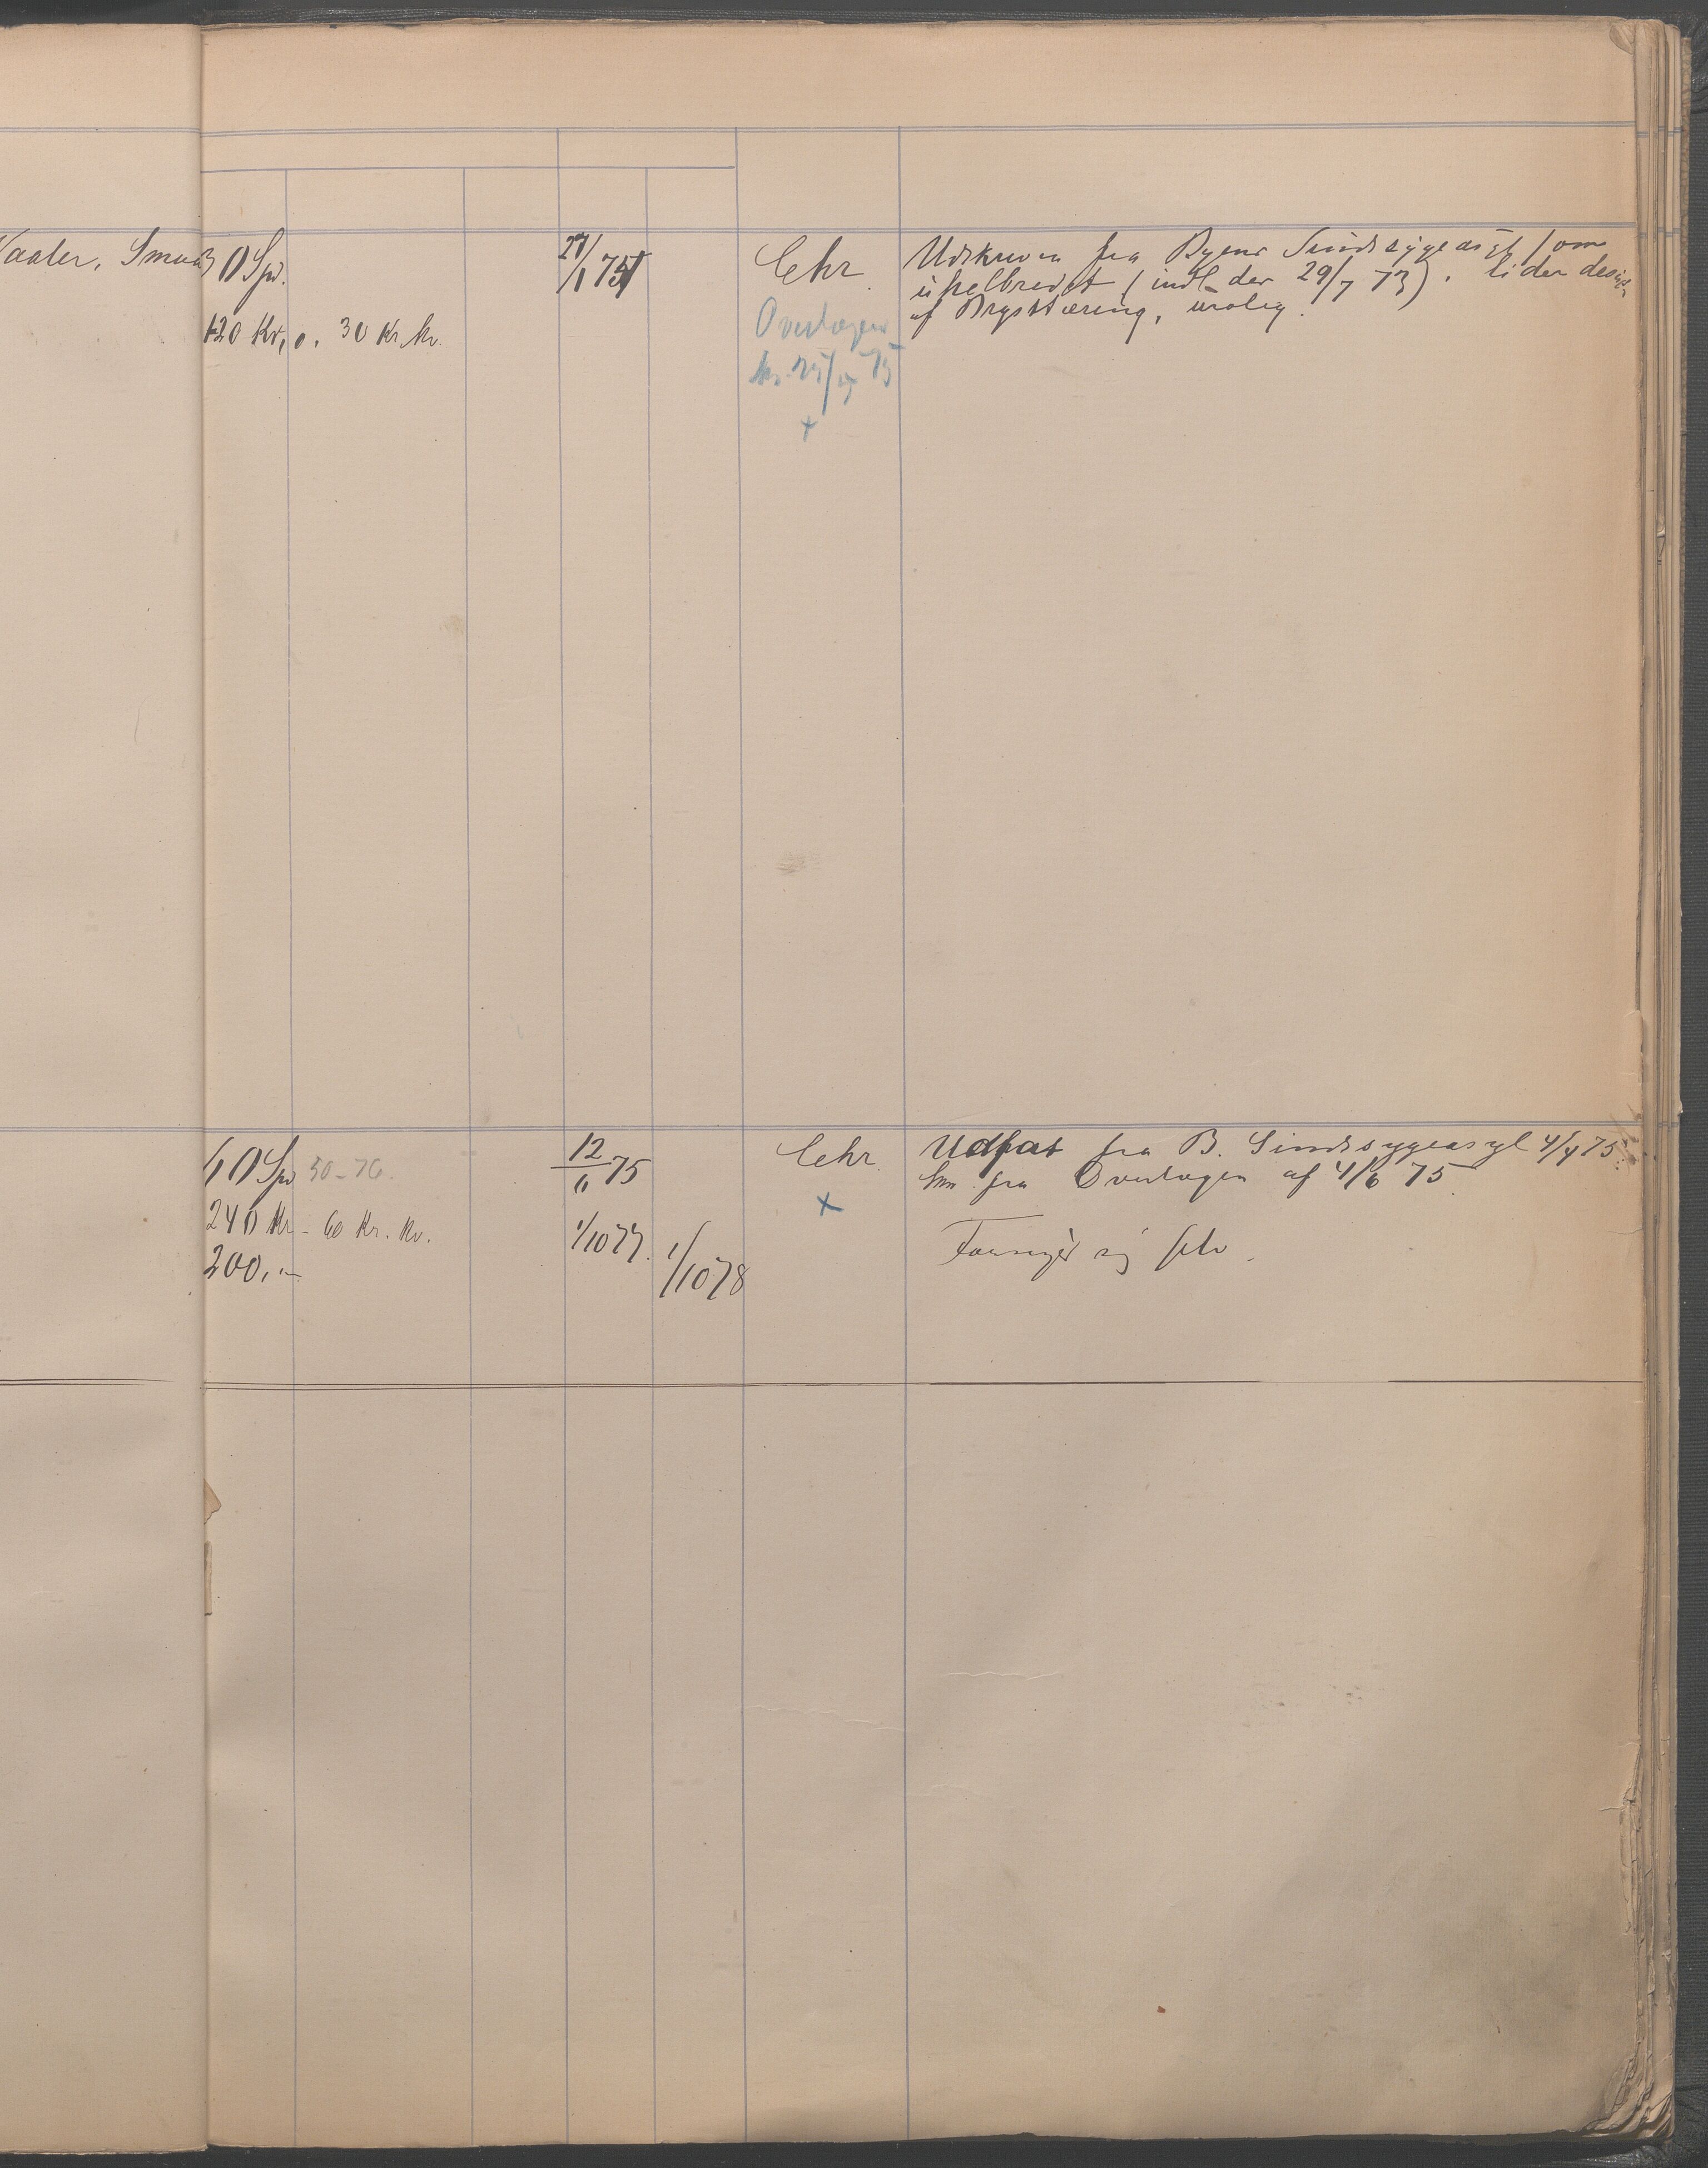 Vaaler, Smaa
30 Spd.
120 Kr, o. 30 Kr. kv.
27/1 75
Lehr.
Overlægen
kr. 25/ 75
+
Udskreven fra Byens Sindssygeasyl som
uhelbredet (indl. der 29/7 73). Lider des
af Brystæring, urolig.
60 Spd 50-76.
240 Kr - 60 Kr. kv.
200,-
12/6 75
1/10 77.
1/10 78
Lehr.
x
Udskr fra B. Sindssygeasyl 4/4 75
fra Overlægen af 4/6 75
Forsørger sig selv.